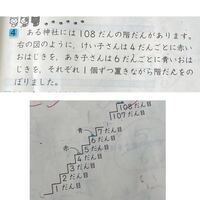 4 ある神社には108だんの階だんがあります。
右の図のように、けい子さんは4だんごとに赤い
おはじきを、あき子さんは6だんごとに青いおは
じきを、それぞれ1個ずつ置きながら階だんをの
ぼりました。
108だん目
107だん目
青
7だん目
6だん目
赤
5だん目
4だん目
3だん目
2だん目
1だん目